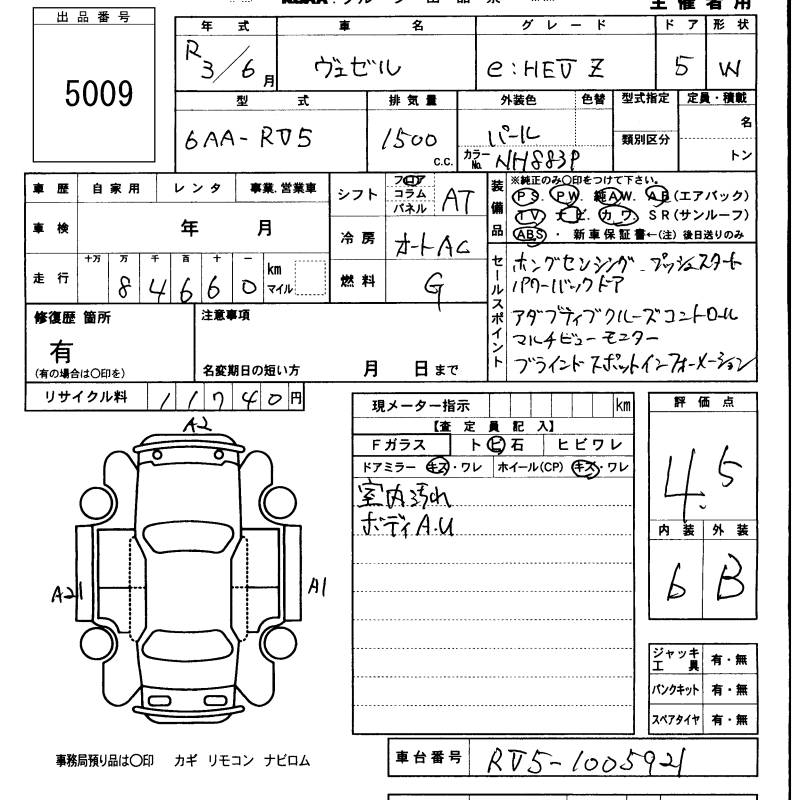 出品番号
5009
主催者用
年式 車名 グレード ドア 形状
R3/6月 ヴェゼル e:HEV Z 5 W
型式 排気量 外装色 色替 型式指定 定員・積載
6AA-RV5 1500 c.c. パール 名
カラーNo. NH883P 類別区分 トン
車歴 自家用 レンタ 事業.営業車
車検 年 月
走行 十万 万 千 百 十 一
8 4 6 6 0 km マイル
シフト フロア コラム パネル AT
冷房 オートAC
燃料 G
装備品 ※純正のみ○印をつけて下さい。
PS. PW. 純AW. AB(エアバック)
TV ナビ. カワ. SR(サンルーフ)
ABS ・ 新車保証書←(注) 後日送りのみ
セールスポイント
ホンダセンシング プッシュスタート
パワーバックドア
アダプティブクルーズコントロール
マルチビューモニター
ブラインドスポットインフォメーション
修復歴 箇所
有
(有の場合は○印を)
注意事項
名変期日の短い方 月 日まで
リサイクル料 11740円
現メーター指示 km
【査定員記入】
Fガラス ト ビ 石 ヒビワレ
ドアミラー キズ・ワレ ホイール(CP) キズ・ワレ
室内汚れ
ボディA.U
評価点
4.5
内装 外装
6 B
A2
A21
A1
ジャッキ工具 有・無
パンクキット 有・無
スペアタイヤ 有・無
事務局預り品は○印 カギ リモコン ナビロム
車台番号 RV5-1005921